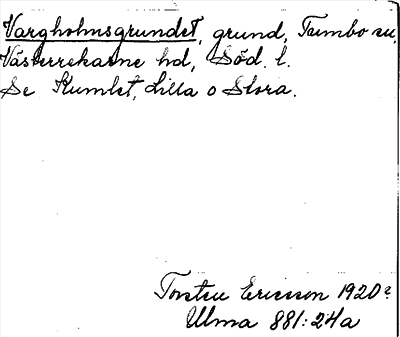 Vargholmsgrundet, grund, Tumbo sn,
Västerrekarne hd, Söd. l.
Se Kumlet, Lilla o Stora.
Torsten Ericsson 1920?
Ulma 881:24a